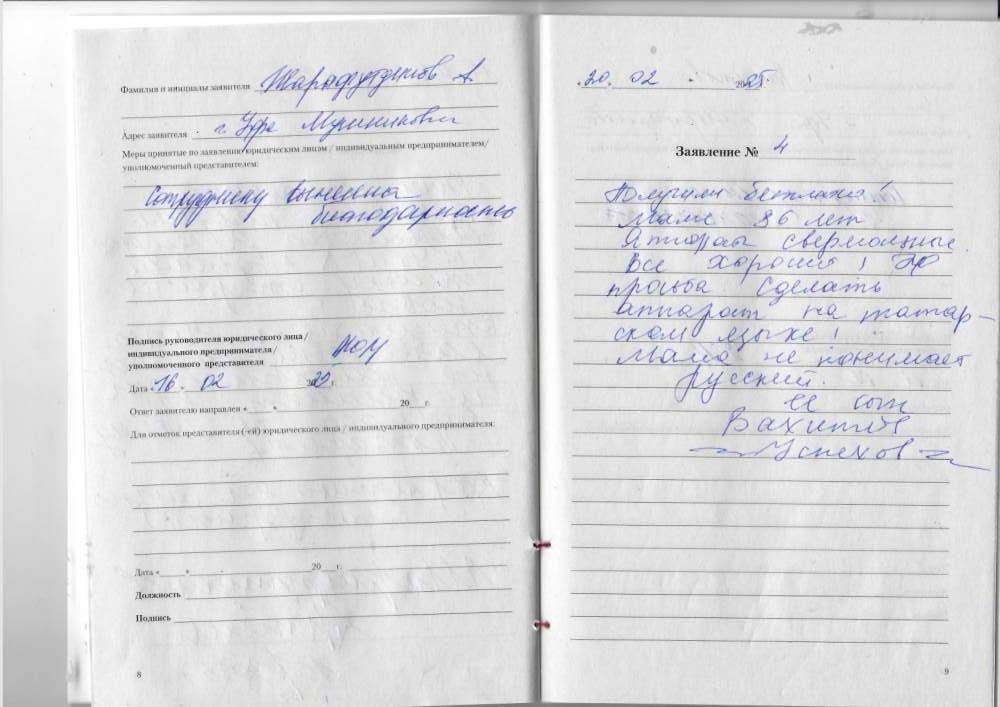 Фамилия и инициалы заявителя Шарафутдинов А.
Адрес заявителя г. Уфа
Меры принятые по заявлению юридическим лицом / индивидуальным предпринимателем/
уполномоченный представителем:
Сотруднику вынесена
благодарность
Подпись руководителя юридического лица /
индивидуального предпринимателя /
уполномоченного представителя
Дата «16» 02 20 г.
Ответ заявителю направлен «____» 20___г.
Для отметок представителя (-ей) юридического лица / индивидуального предпринимателя:
Дата «____» 20___г.
Должность
Подпись
8
20. 02 2025г.
Заявление № 4
Получили бесплатно!
Маме 86 лет
Аппараты сверхмощные.
Все хорошо!
просьба сделать
аппарат на татар-
ском языке!
Мама не понимает
русский.
Ее сын
Вахитов
Успехов
9